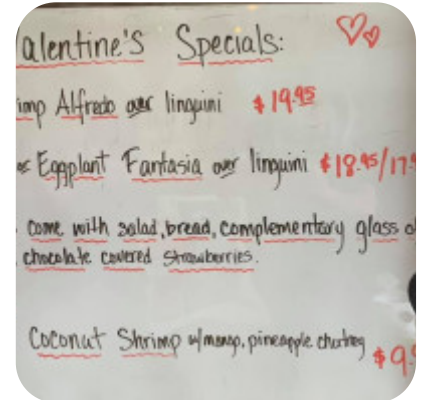 alentine's Specials:
imp Alfredo over linguini $19.95
Eggplant Fantasia over linguini $18.95/17.
come with salad, bread, complementary glass o
chocolate covered strawberries.
Coconut Shrimp w/mango, pineapple chutney $9.